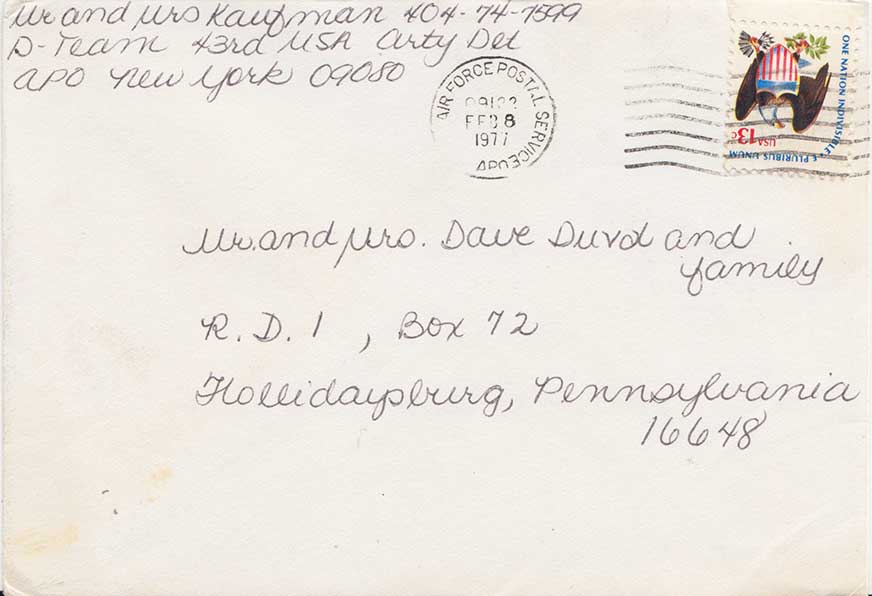 Mr and Mrs Kaufman 404-74-7599
D-Team 43rd USA Arty Det
APO New York 09080
AIR FORCE POSTAL SERVICE
FEB 8
1977
APO
ONE NATION INDIVISIBLE • E PLURIBUS UNUM
USA
13c
Mr. and Mrs. Dave and
family
R. D. 1 , Box 72
Hollidaysburg, Pennsylvania
16648